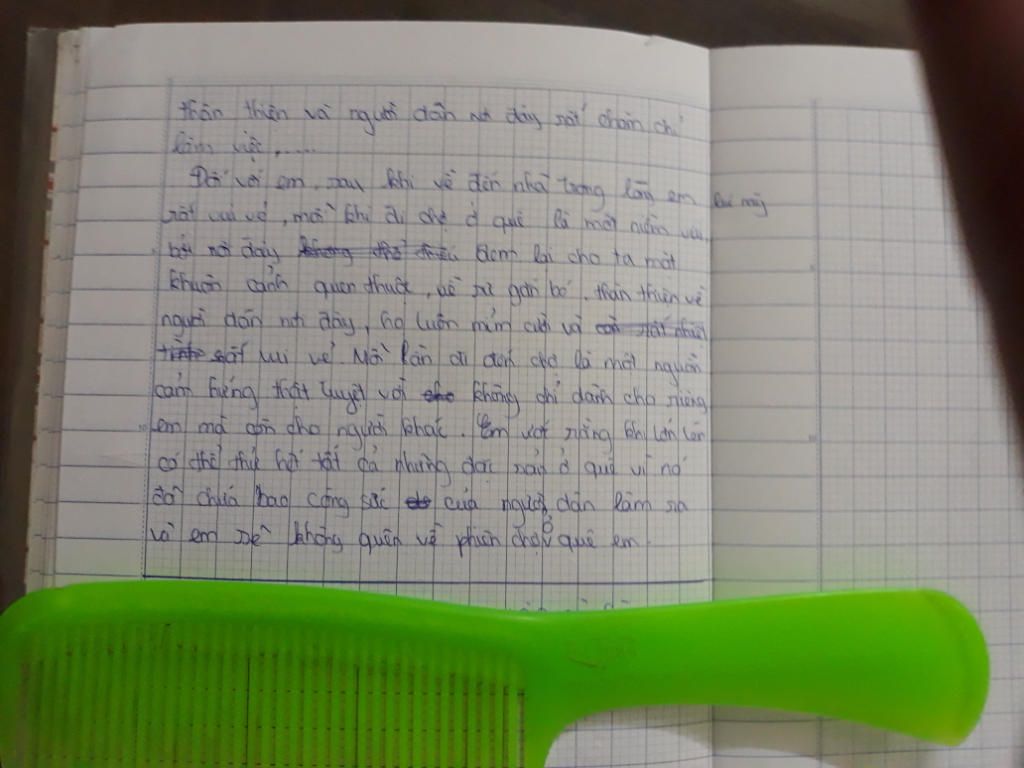 thân thiện và người dân nơi đây rất chăm chỉ
làm việc,.....
Đối với em, sau khi về đến nhà trong lòng em
rất vui vẻ, mỗi khi đi chợ ở quê là một niềm vui
bởi nơi đây không thể thiếu đem lại cho ta một
khuôn cảnh quen thuộc, về sự gắn bó, thân thiện về
người dân nơi đây, họ luôn mỉm cười và
rất vui vẻ. Mỗi lần đi đến chợ là một nguồn
cảm hứng thật tuyệt vời cho không chỉ dành cho riêng
em mà còn cho người khác. Em ước rằng khi lớn lên
có thể thu hết tất cả những đặc sản ở quê vì nó
đã chứa bao công sức của người dân làm ra
và em sẽ không quên về phiên chợ ở quê em.